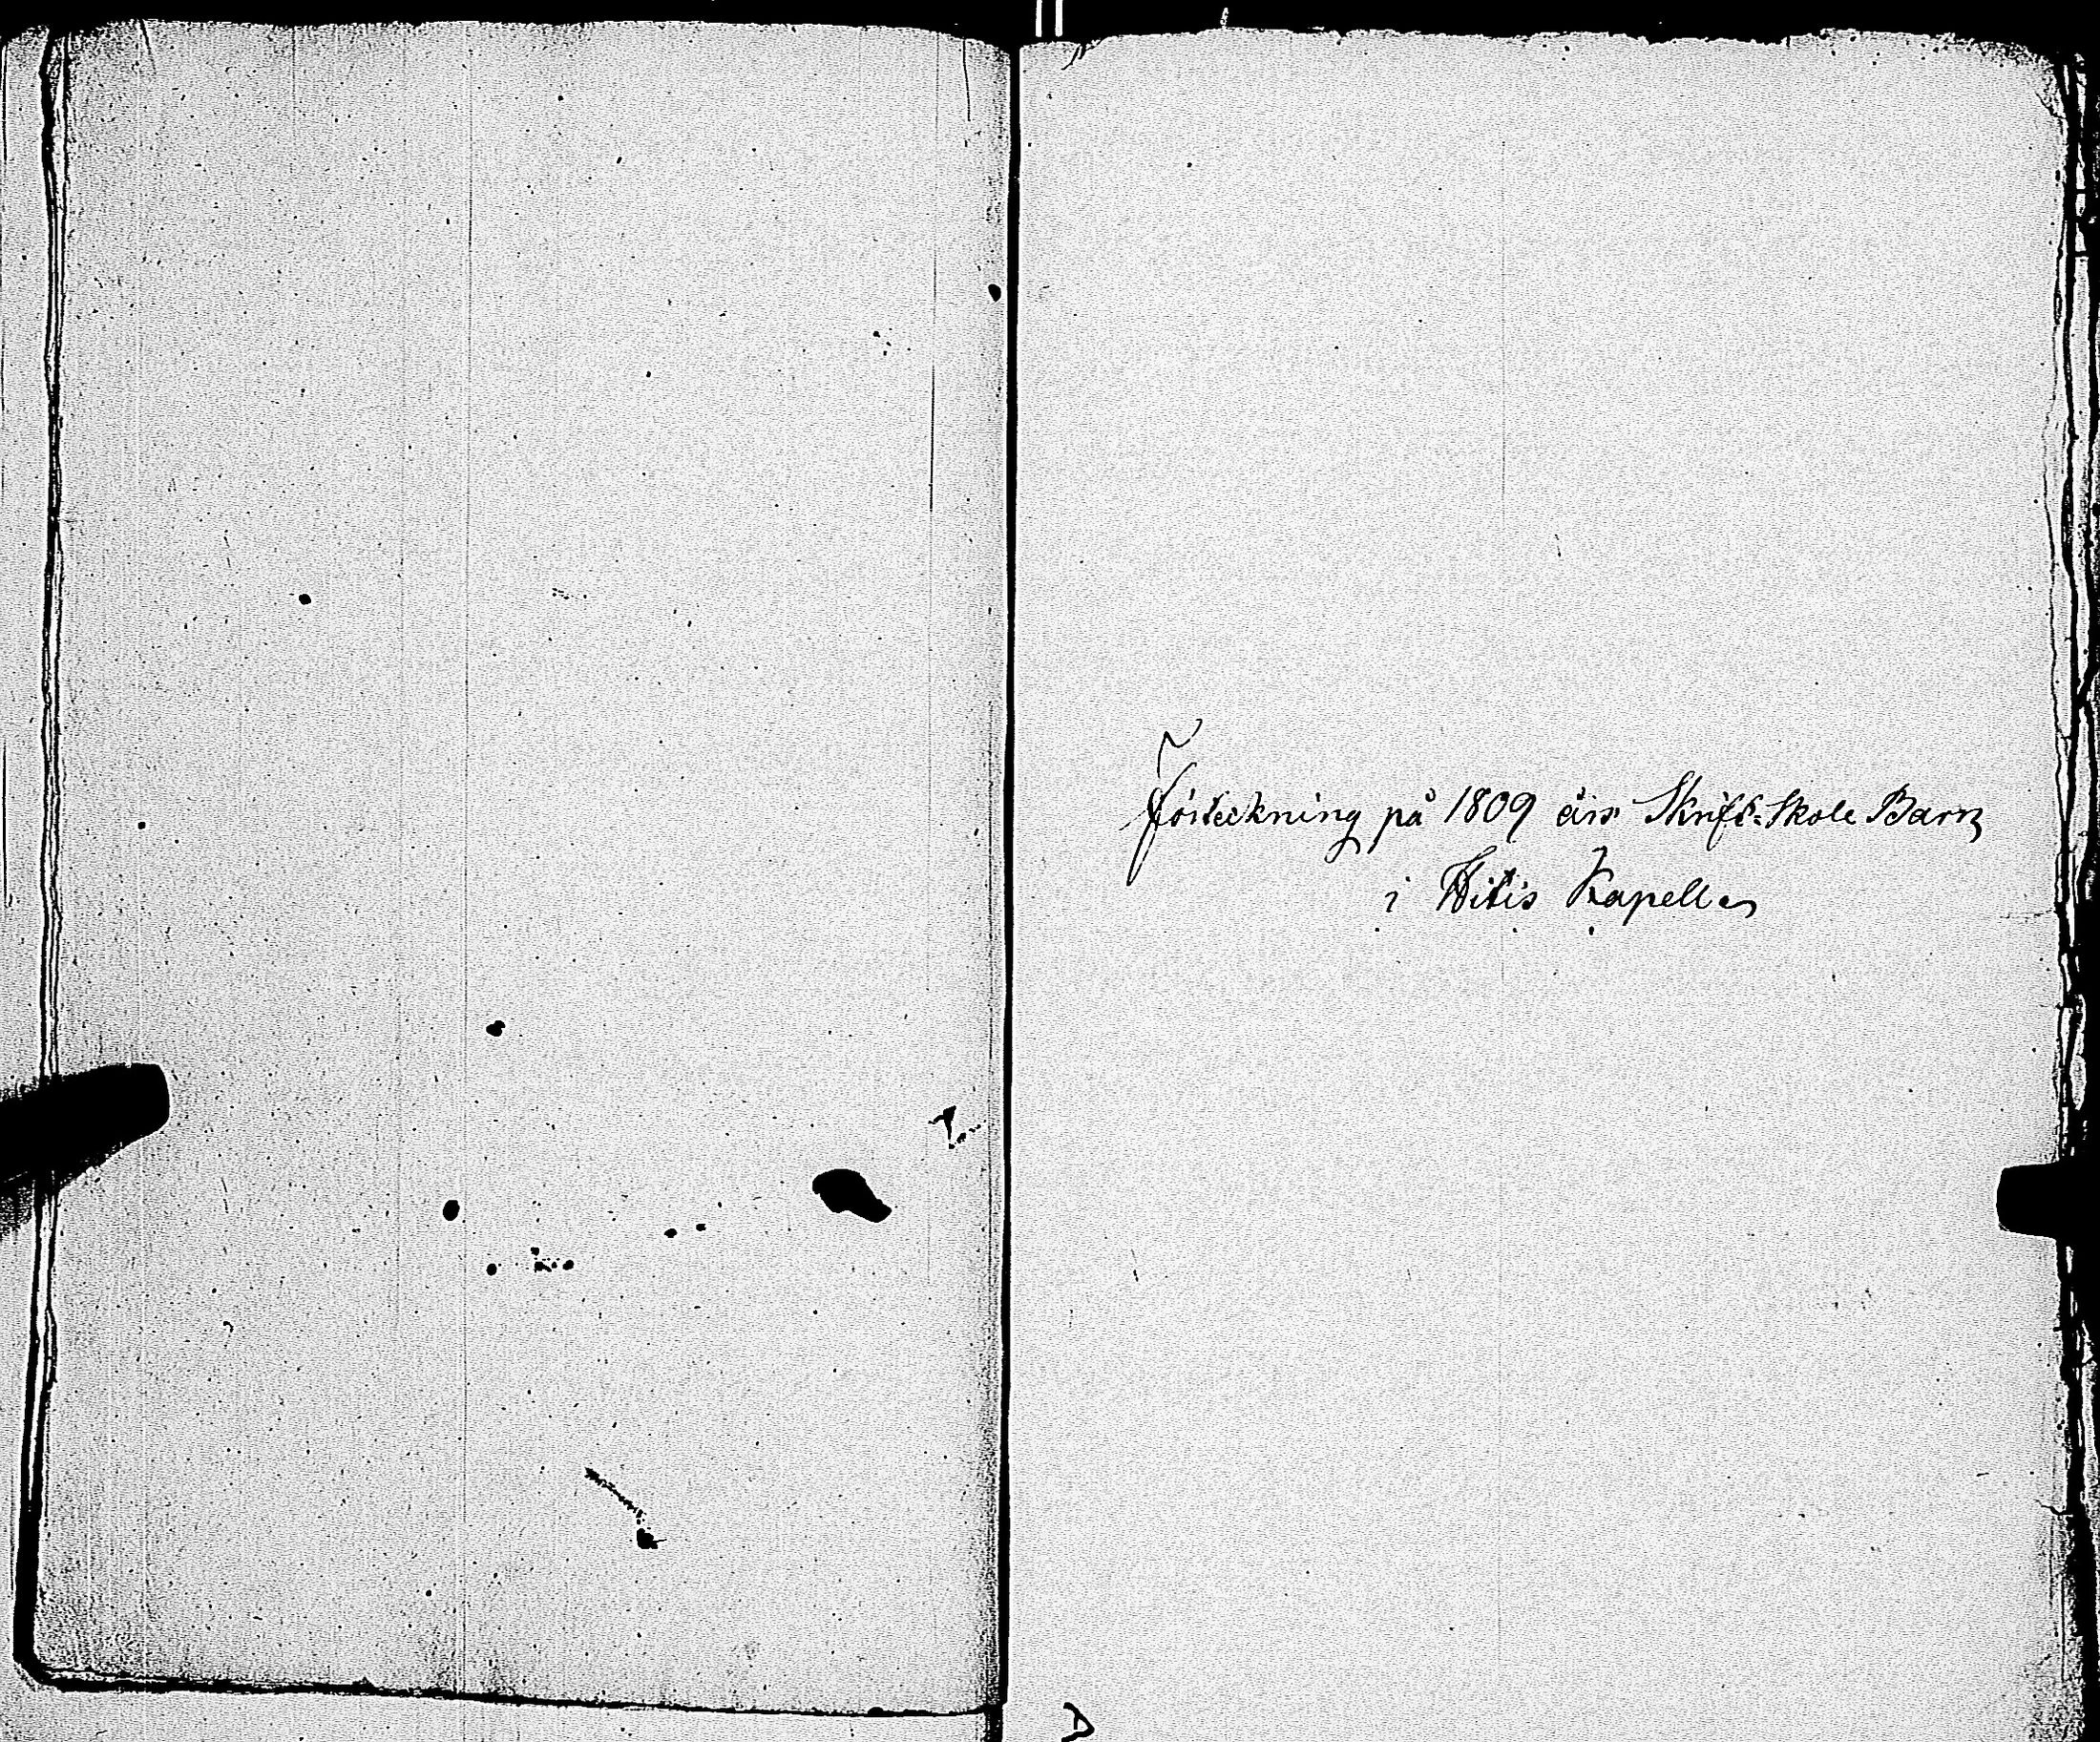 Förteckning på 1809 års Skrift-Skole Barn
i Hitis Kapell